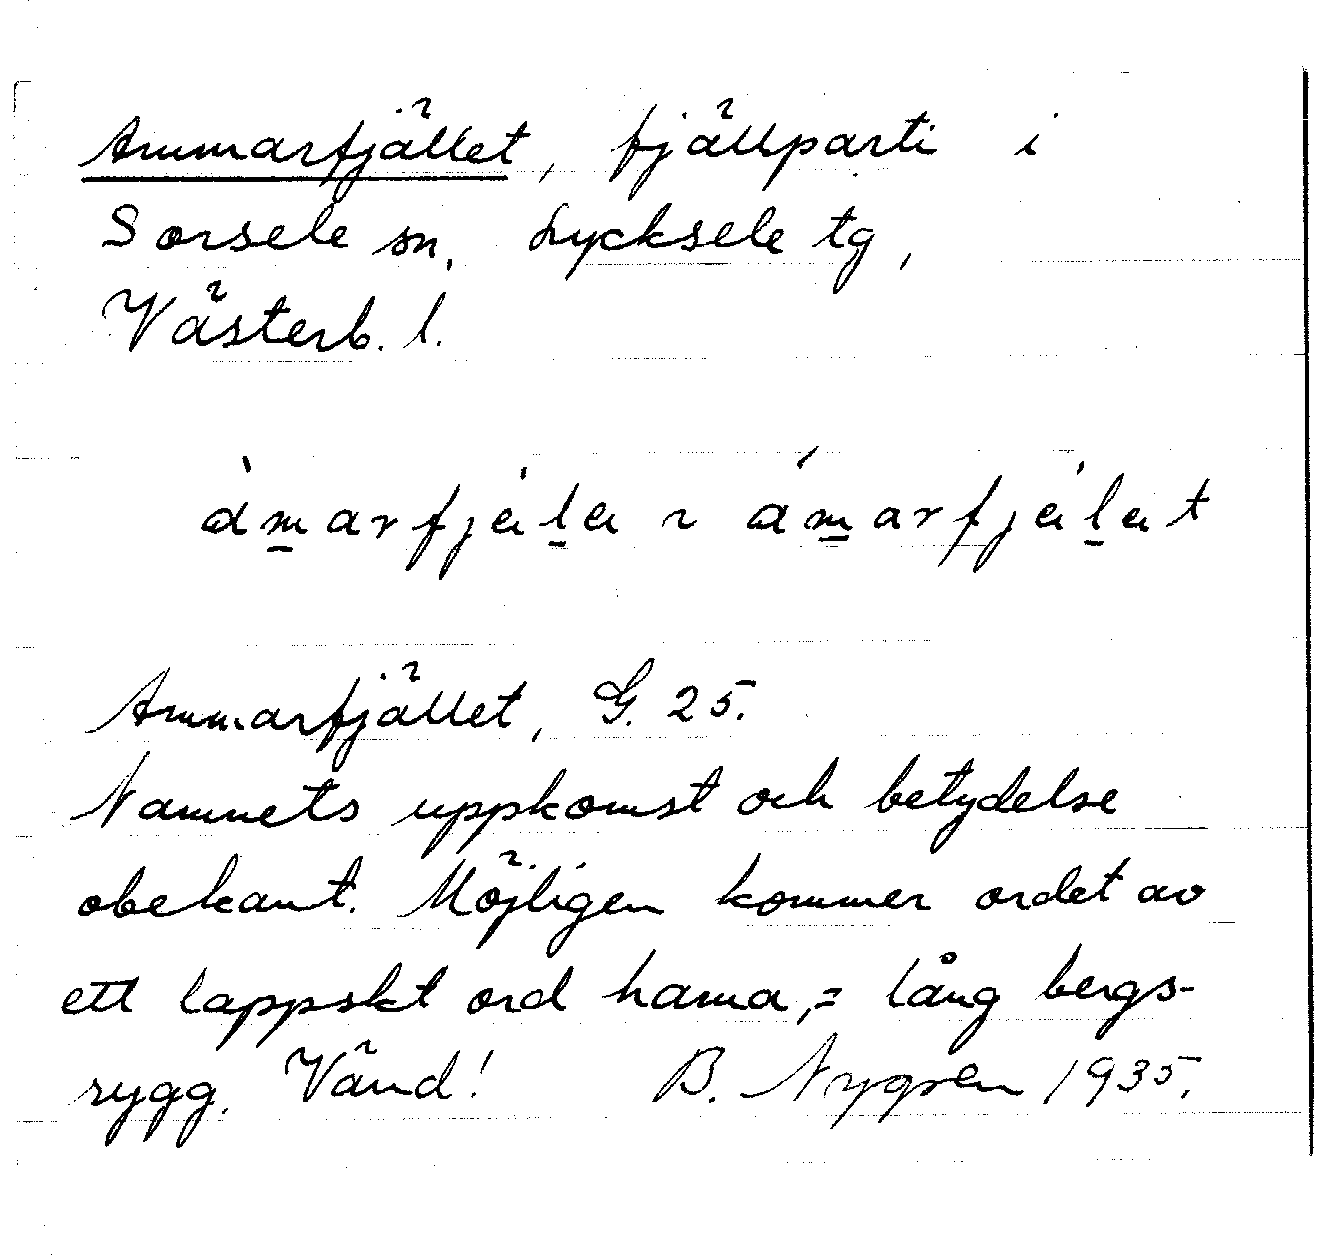 Ammarfjället, fjällparti i
Sorsele sn, Lycksele tg,
Västerb. l.
àmarfjäla ~ ámarfjälat
Ammarfjället, G. 25.
Namnets uppkomst och betydelse
obekant. Möjligen kommer ordet av
ett lappskt ord hama, = lång bergs-
rygg. Vänd! B. Nygren 1935.